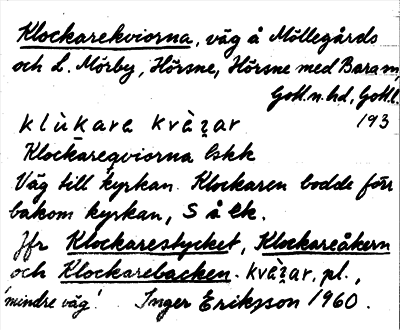 Klockarekviorna, väg å Möllegårds
och L. Mörby, Hörsne, Hörsne med Bara sn,
Gotl. n. hd, Gotl. l.
klù̄kara kvàʐar 193
Klockareqviorna lskk
Väg till kyrkan. Klockaren bodde förr
bakom kyrkan, S å ek.
Jfr Klockarestycket, Klockareåkern
och Klockarebacken. kvàʐar, pl.,
'mindre väg'. Inger Eriksson 1960.